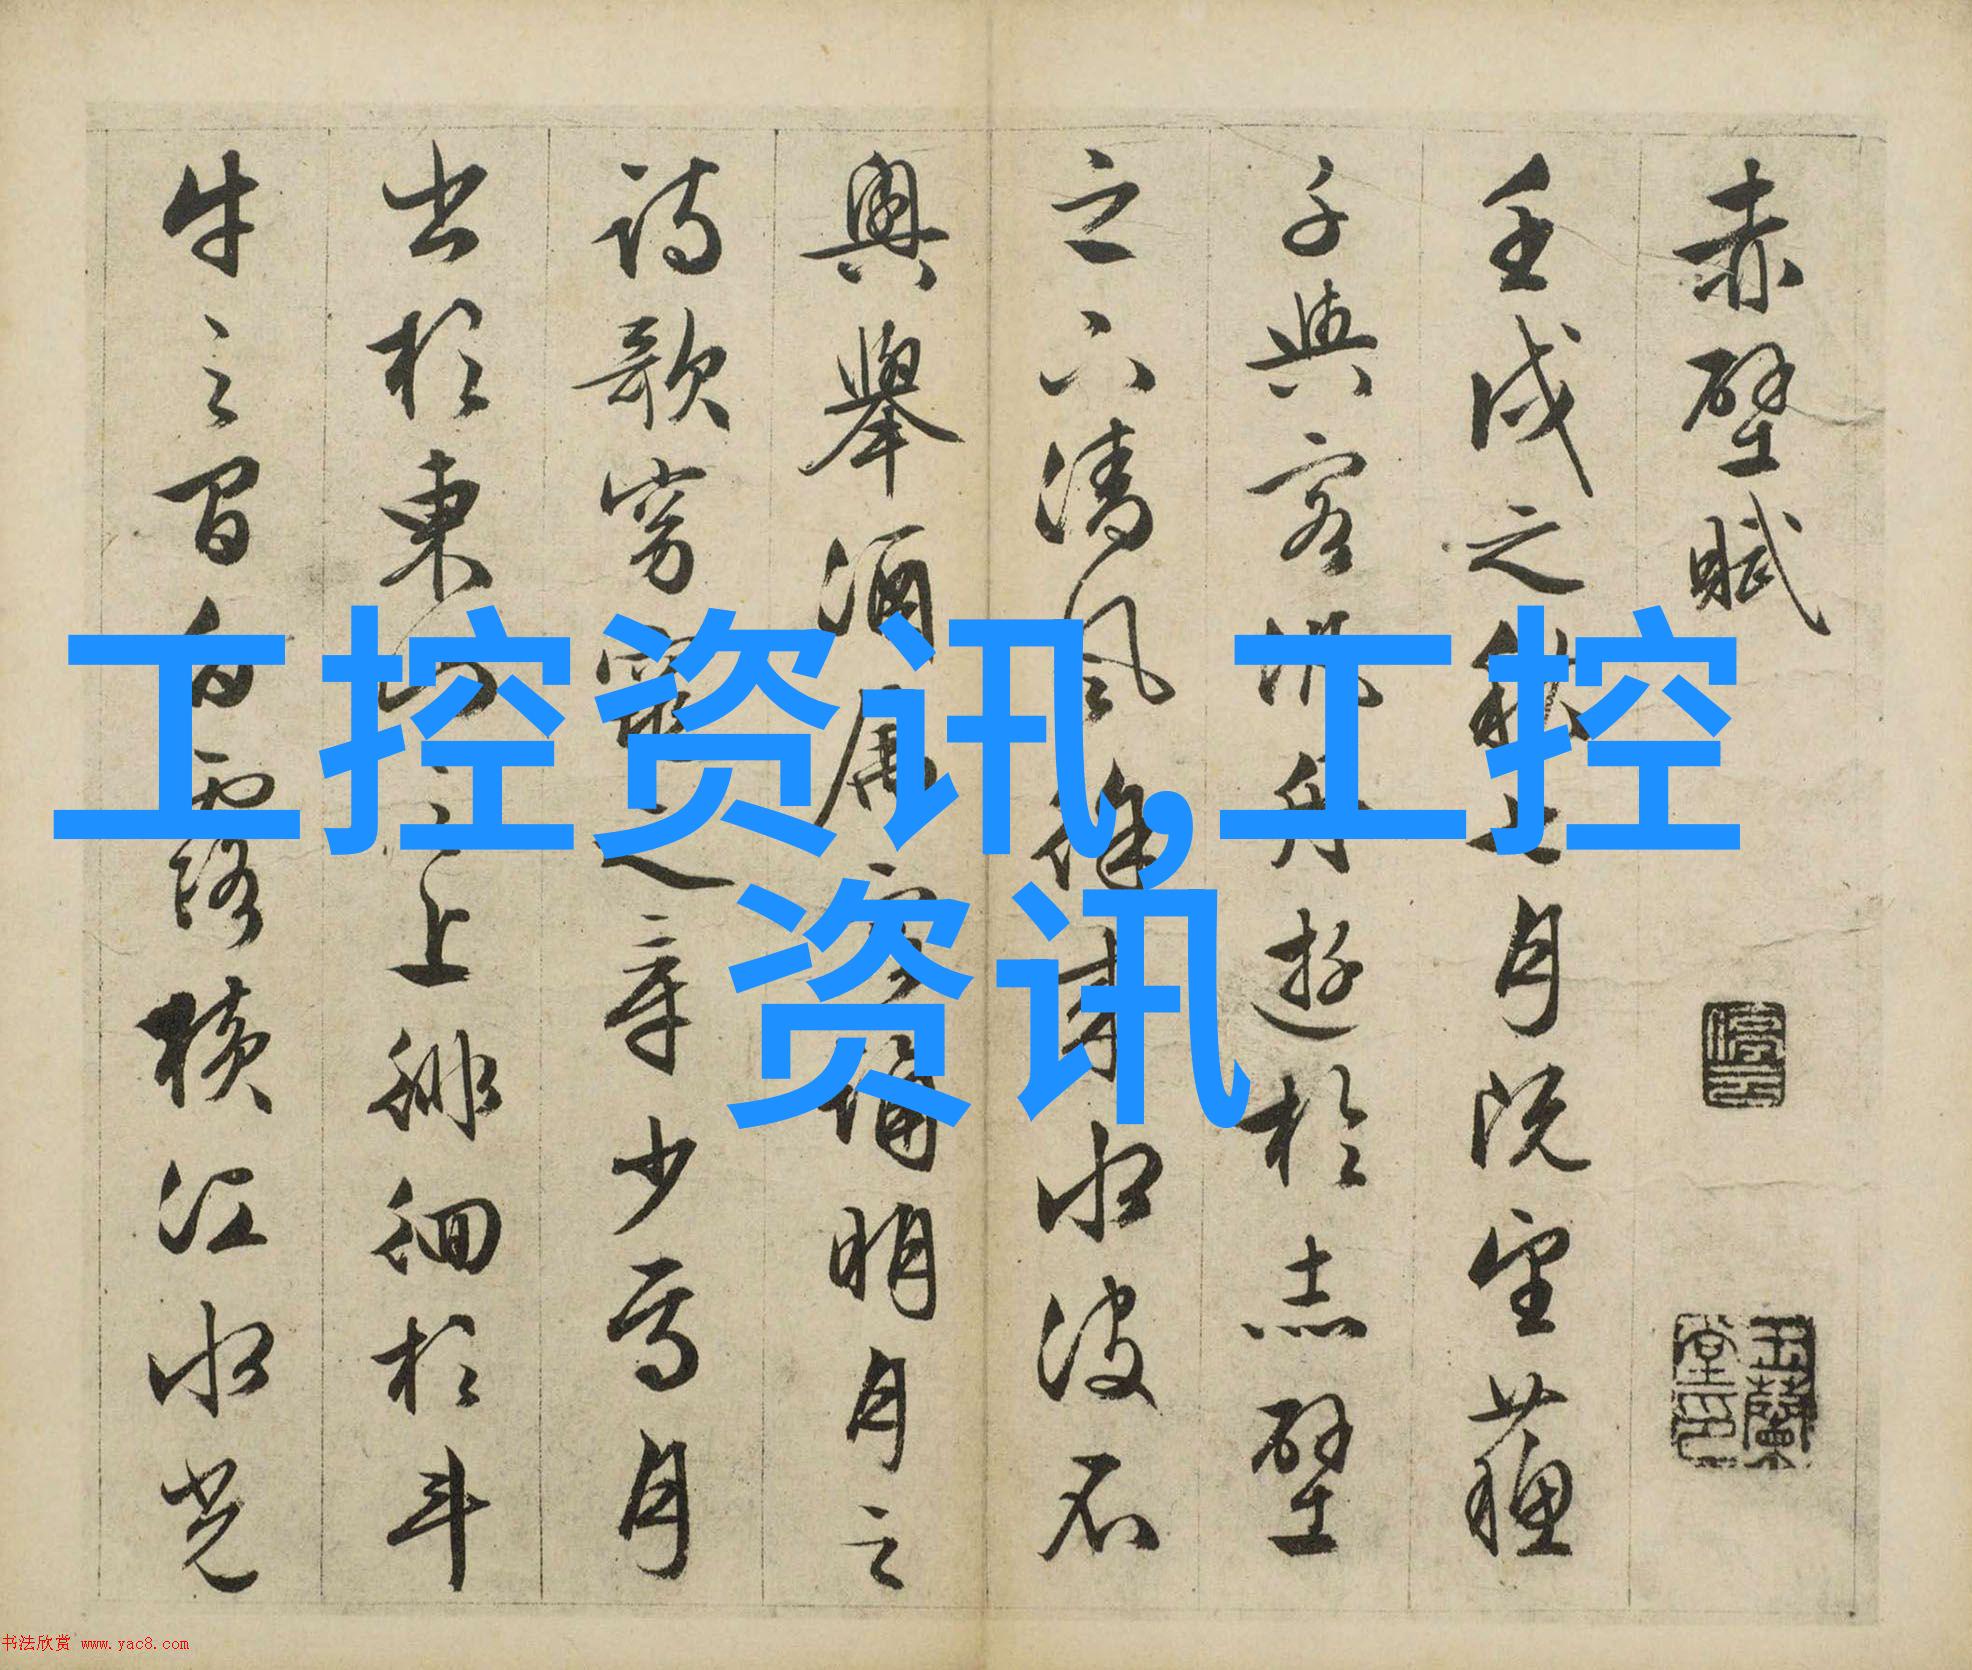 赤壁賦
壬戌之秋七月既望蘓
子與客汎舟遊於赤壁
之下清風徐来水波不
興舉酒屬客誦明月之
詩歌窈窕之章少焉月
出於東山之上徘徊於斗
牛之間白露横江水光
停云
玉蘭堂印
工控资讯,工控
资讯
书法欣赏 www.yac8.com